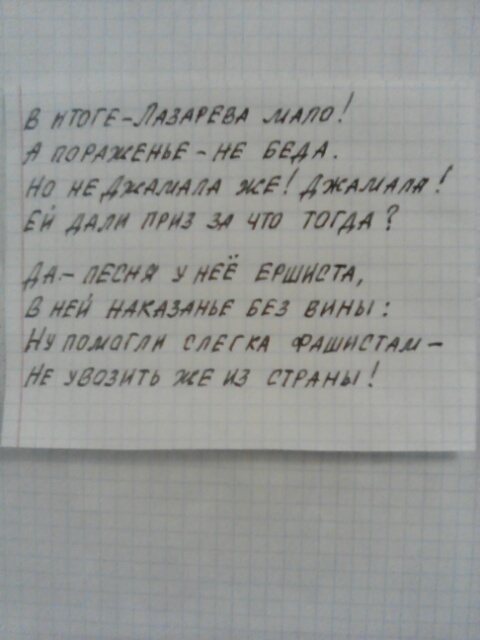 В ИТОГЕ-ЛАЗАРЕВА МАЛО!
А ПОРАЖЕНЬЕ - НЕ БЕДА.
НО НЕ ДЖАМАЛА ЖЕ! ДЖАМАЛА!
ЕЙ ДАЛИ ПРИЗ ЗА ЧТО ТОГДА?
ДА - ПЕСНЯ У НЕЁ ЕРШИСТА,
В НЕЙ НАКАЗАНЬЕ БЕЗ ВИНЫ:
НУ ПОМОГЛИ СЛЕГКА ФАШИСТАМ -
НЕ УВОЗИТЬ ЖЕ ИЗ СТРАНЫ!